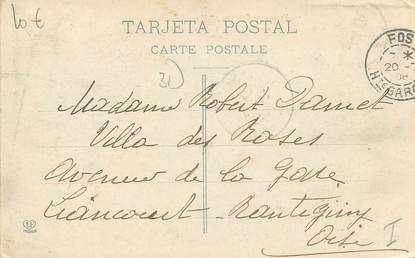 10 €
TARJETA POSTAL
CARTE POSTALE
FOS
20
Hte GARO
31
Madame Robert Damet
Villa des Roses
Avenue de la Gare
Liancourt - Rantigny
Oise
I